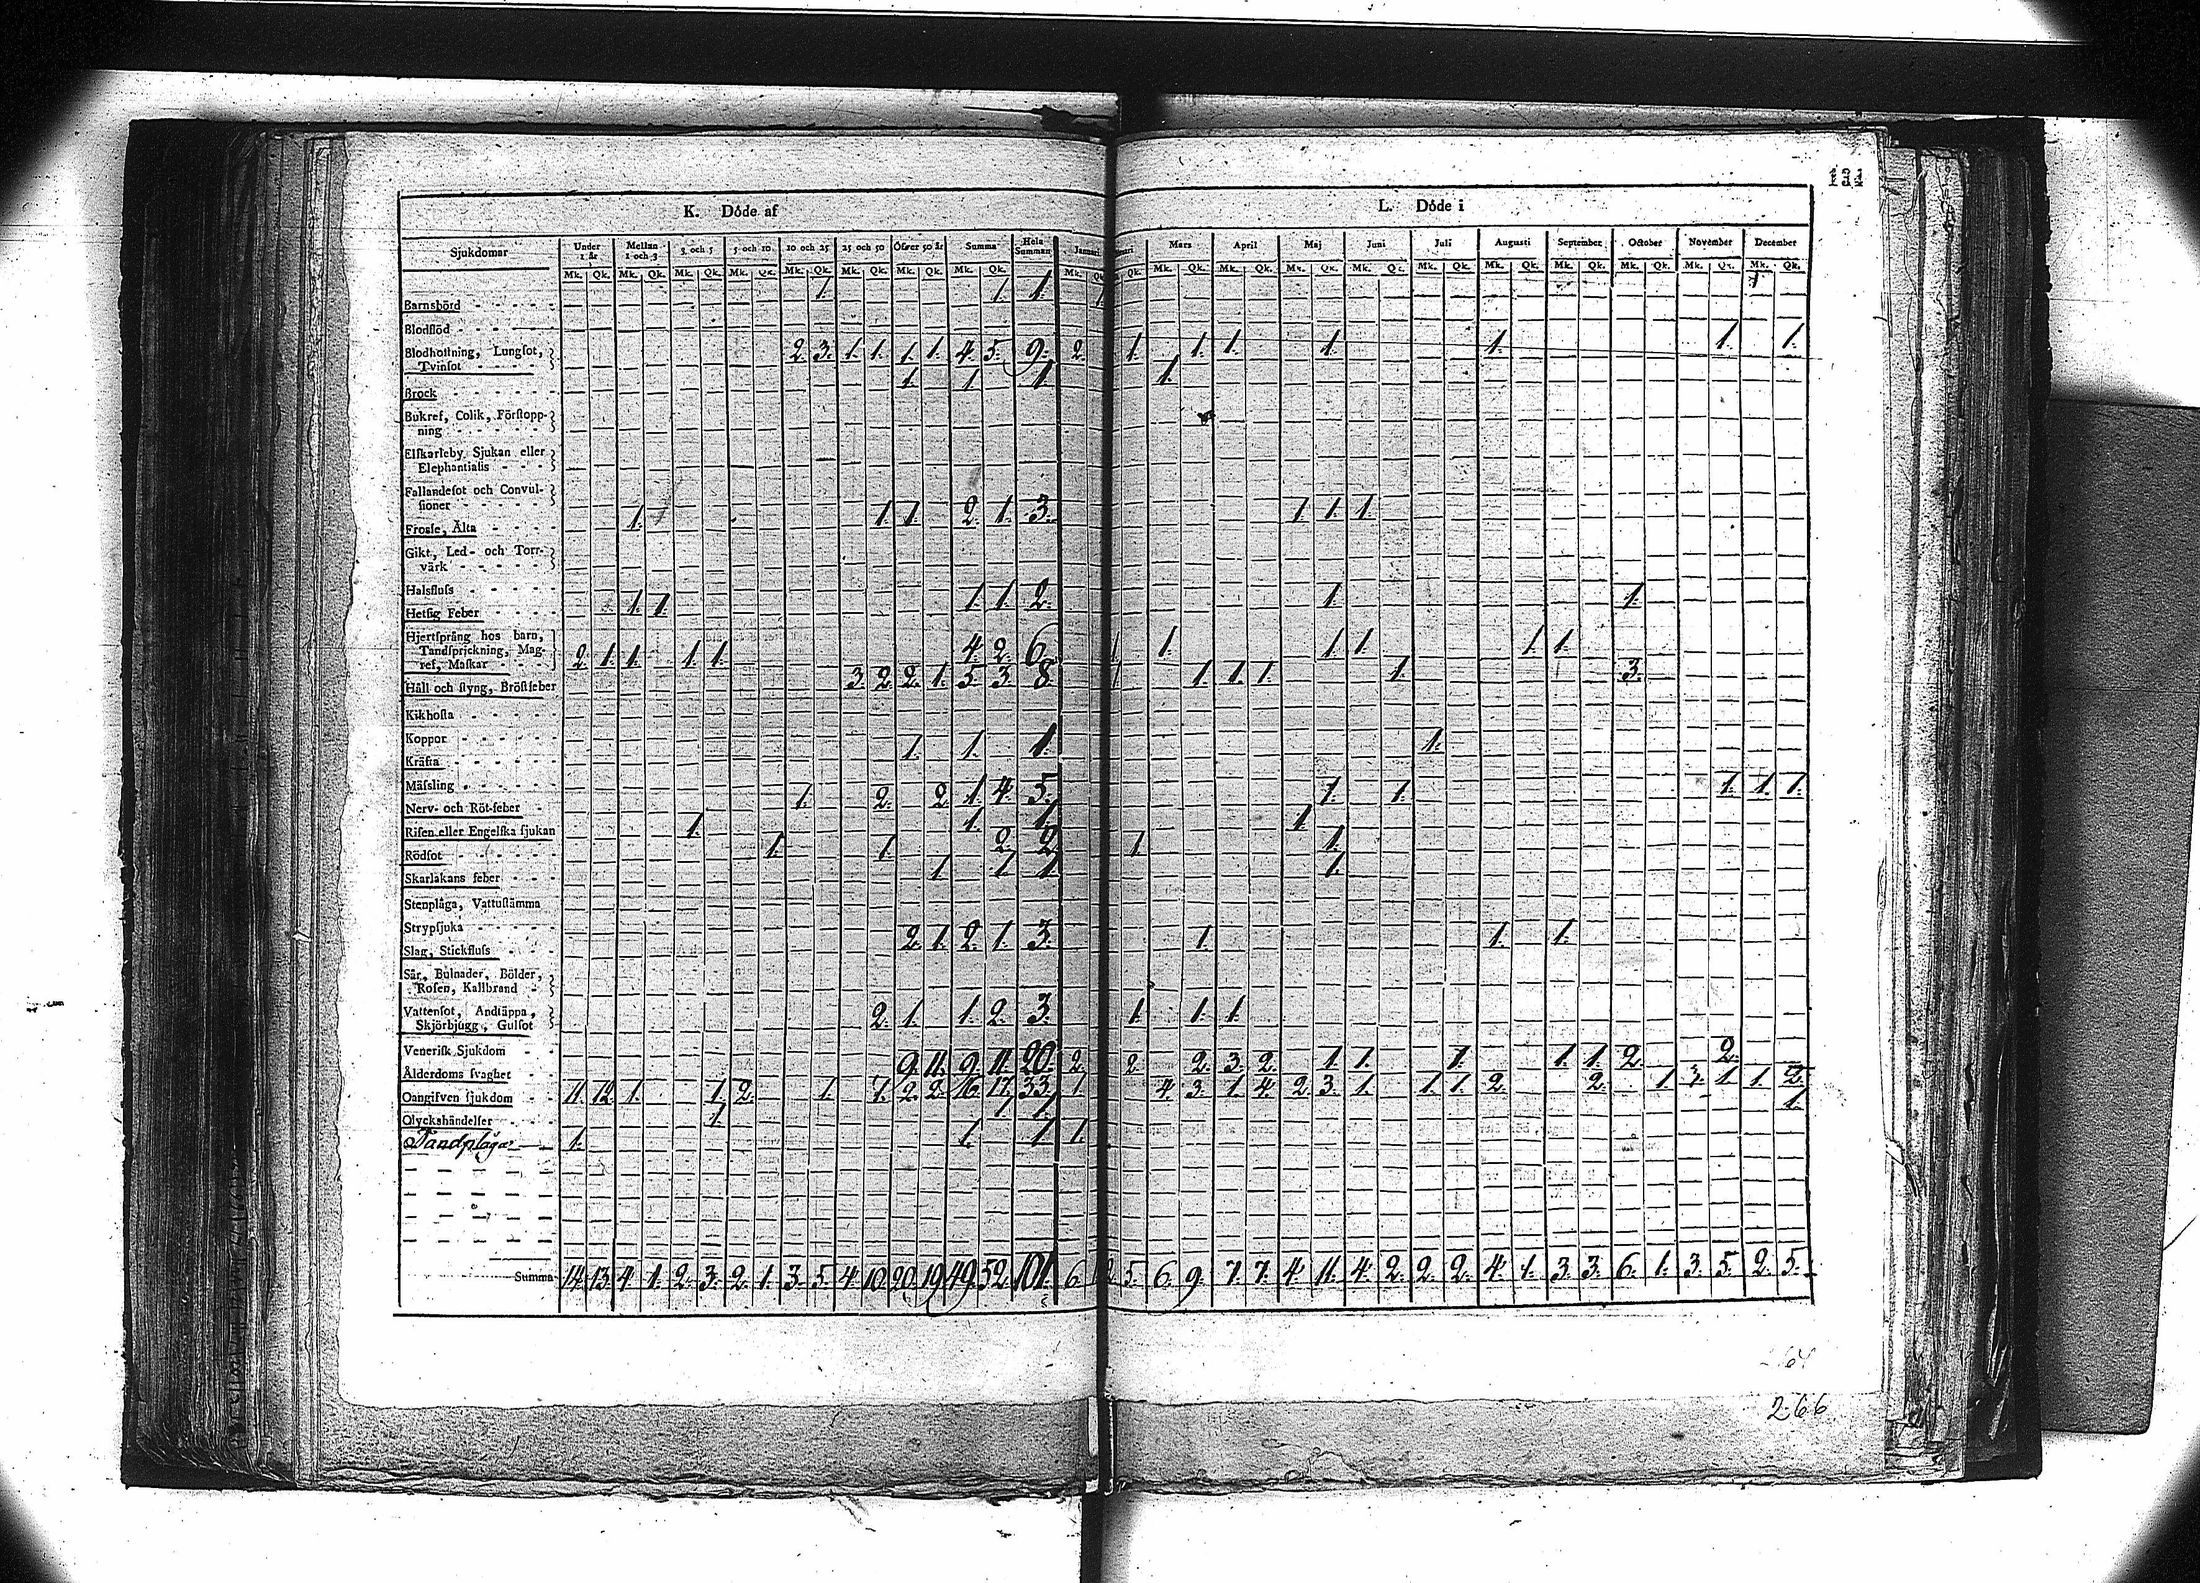 K. Döde af L. Döde i
Sjukdomar Under 1 år Mellan 1 och 3 3 och 5 5 och 10 10 och 25 25 och 50 Öfver 50 år Summa Hela Summan Januari Mars April Maj Juni Juli Augusti September October November December
Mk. Qk. Mk. Qk. Mk. Qk. Mk. Qk. Mk. Qk. Mk. Qk. Mk. Qk. Mk. Qk. Mk. Qk. Mk. Qk. Mk. Qk. Mk. Qk. Mk. Qk. Mk. Qk. Mk. Qk. Mk. Qk. Mk. Qk. Mk. Qk. Mk. Qk.
Barnsbörd 1. 1 1
Blodflöd
Blodhostning, Lungsot,
Tvinsot 2. 3. 1. 1. 1. 1. 4. 5. 9. 2. 1. 1. 1. 1. 1. 1. 1.
Brock 1. 1 1 1.
Bukref, Colik, Förstopp-
ning
Elfkarleby Sjukan eller
Elephantiasis
Fallandesot och Convul-
sioner
Frosse, Älta 1. 1. 1. 2. 1. 3. 1. 1. 1.
Gikt, Led- och Torr-
värk
Halsfluss
Hetsig Feber 1. 1. 1. 1. 2. 1. 1.
Hjertsprång hos barn,
Tandsprickning, Mag-
ref, Maskar 2. 1. 1. 1. 1. 4. 2. 6 1 1. 1. 1. 1. 1.
Håll och styng, Bröstfeber 3. 2. 2. 1. 5. 3. 8. 1 1. 1. 1. 1. 3.
Kikhosta
Koppor
Kräfta 1. 1. 1. 1.
Mässling
Nerv- och Röt-feber 1. 2. 2. 1. 4. 5. 1. 1. 1. 1. 1.
Risen eller Engelska sjukan 1. 1. 1 1.
Rödsot 1. 1. 2. 2. 1. 1.
Skarlakans feber 1. 1 1 1.
Stenplåga, Vattustämma
Strypsjuka
Slag, Stickfluss 2. 1. 2. 1. 3. 1. 1. 1.
Sår, Bulnader, Bölder,
Rosen, Kallbrand
Vattensot, Andtäppa,
Skjörbjugg, Gulsot 2. 1. 1. 2. 3. 1. 1. 1.
Venerisk Sjukdom
Ålderdoms svaghet 9. 11. 9. 11. 20. 2. 2. 2. 3. 2. 1. 1. 1. 1. 1. 2. 2.
Oangifven sjukdom 11. 12. 1. 1. 2. 1. 7. 2. 2. 16. 17. 33. 1 4. 3. 1. 4. 2. 3. 1. 1. 1. 2. 2. 1. 3. 1. 1. 2.
Olyckshändelser 1. 1 1 1.
Tandplågor 1. 1. 1 1.
Summa 14. 13. 4. 1. 2. 3. 2. 1. 3. 5. 4. 10. 20. 19. 49. 52. 101. 6. 5. 6. 9. 7. 7. 4. 11. 4. 2. 2. 2. 4. 1. 3. 3. 6. 1. 3. 5. 2. 5.
266